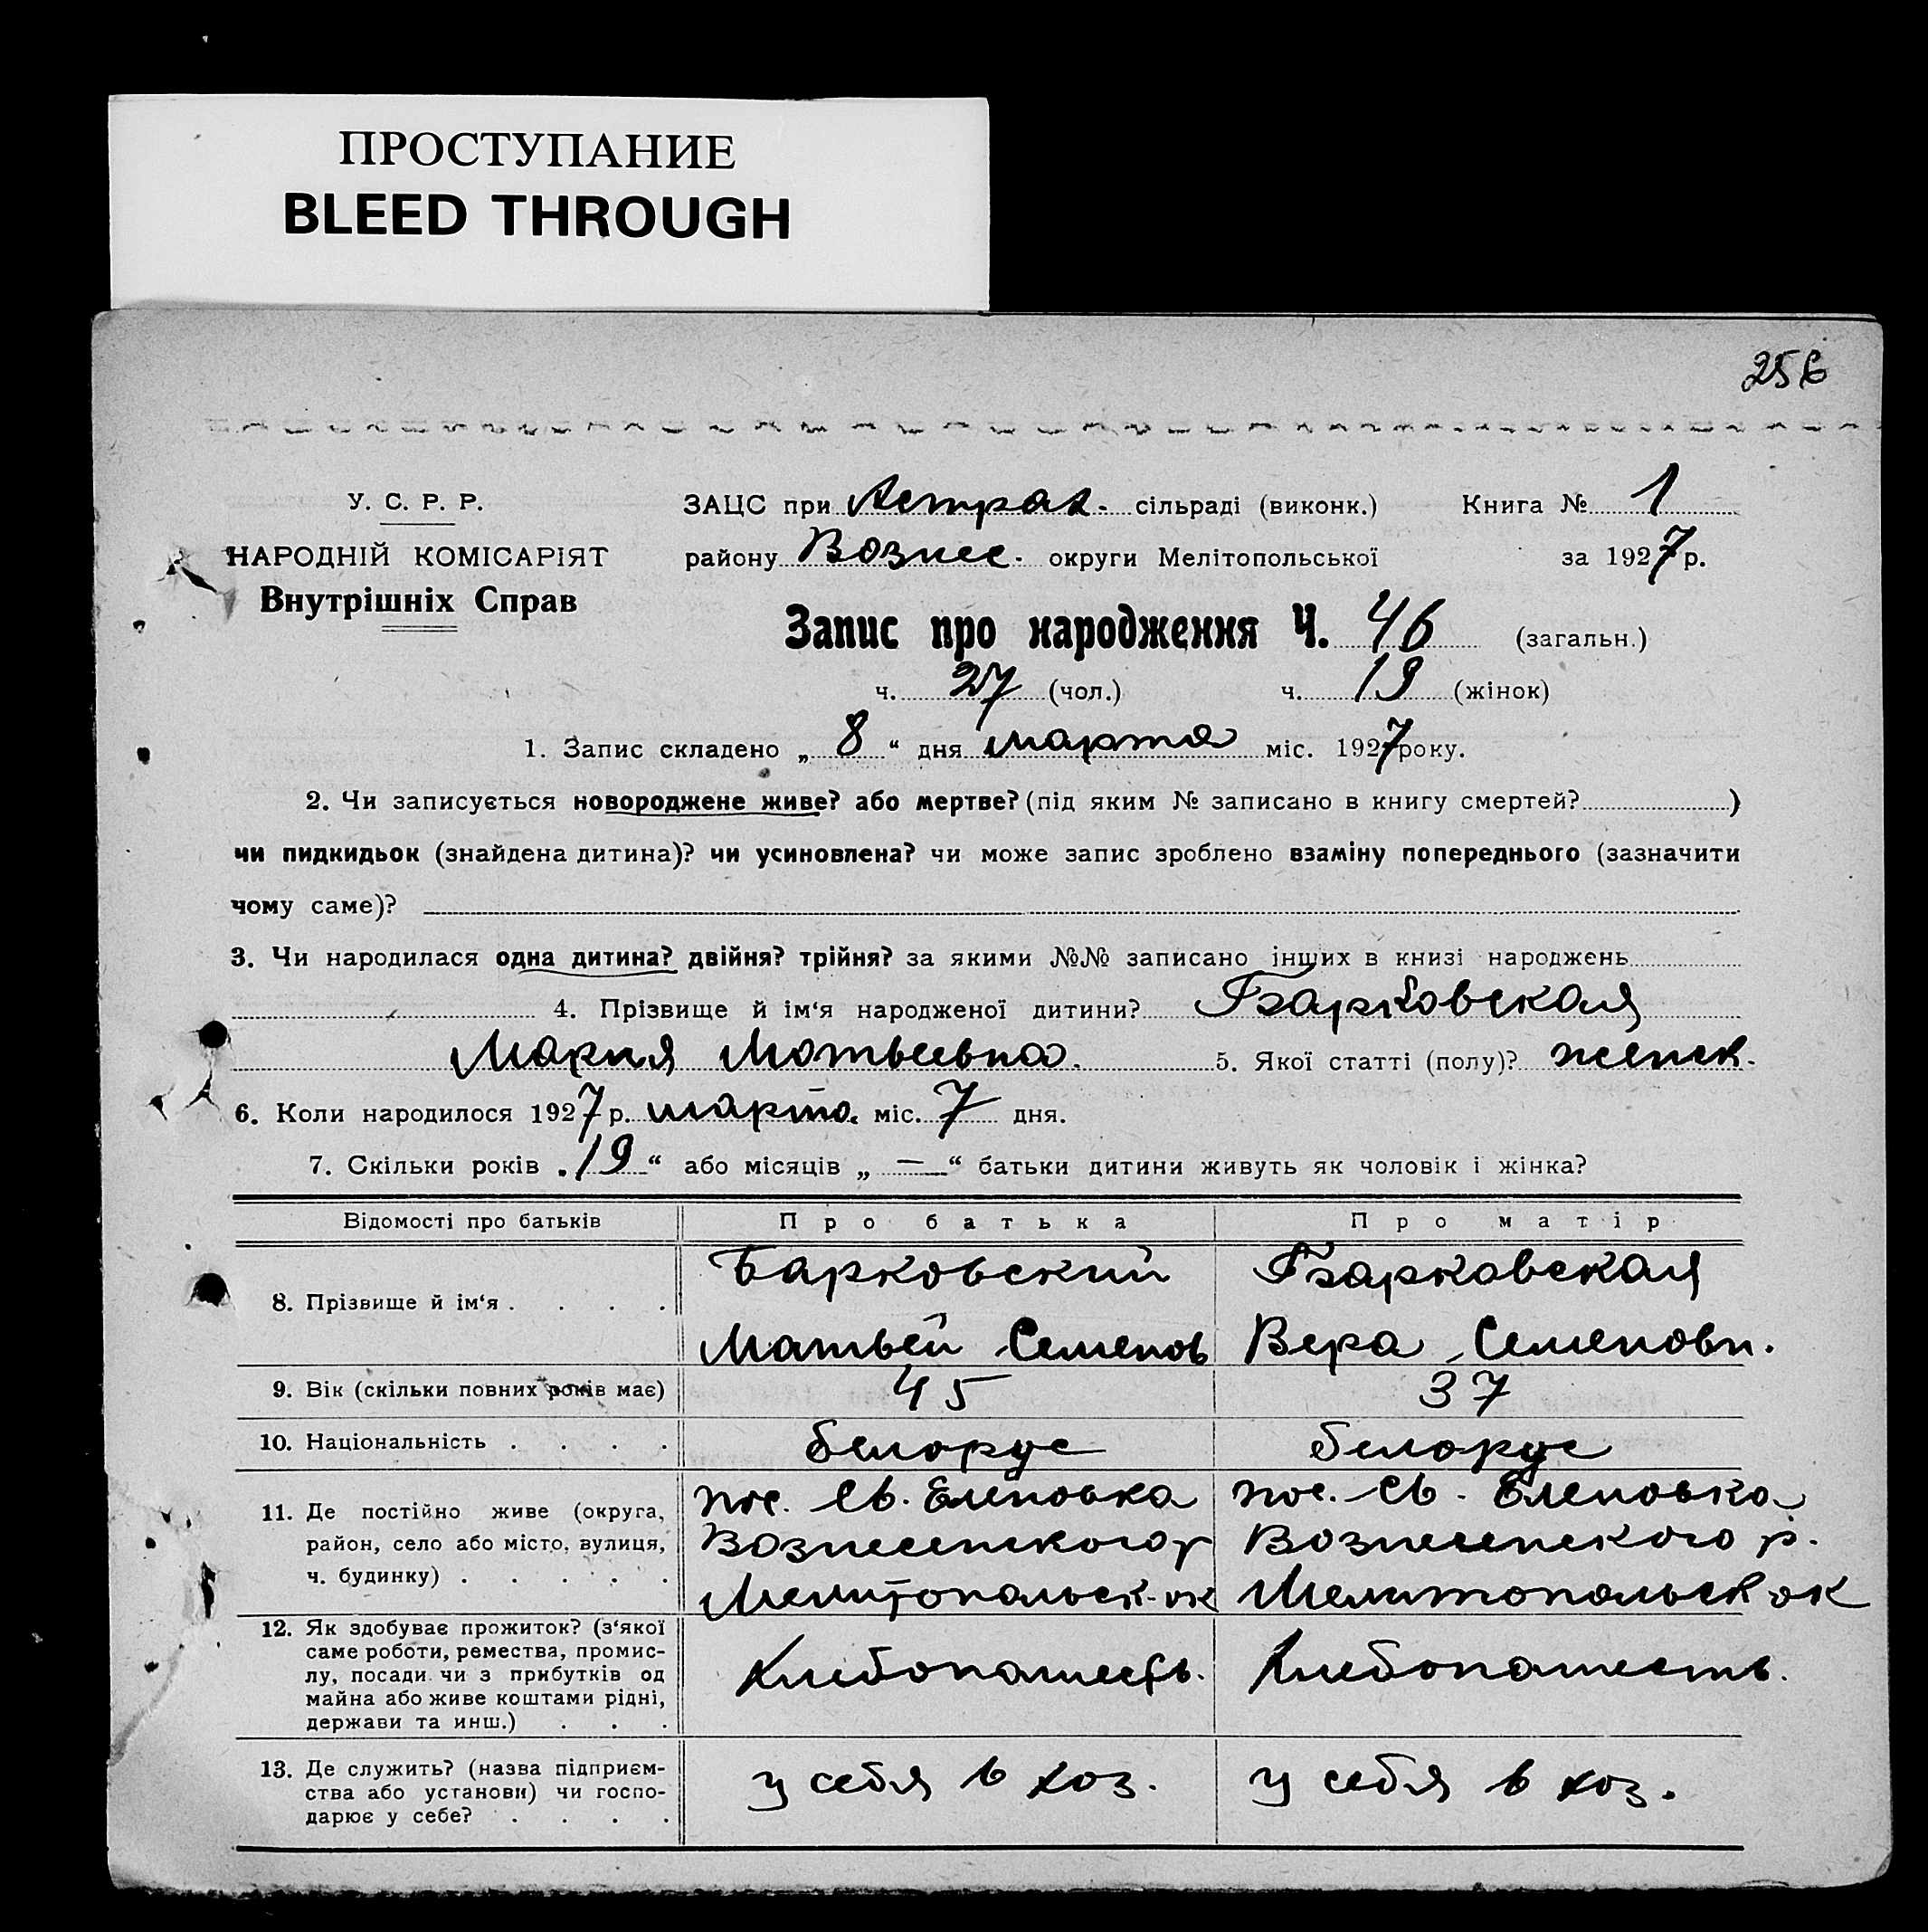 ПРОСТУПАНИЕ
BLEED THROUGH
256
У. С. Р. Р.
НАРОДНІЙ КОМІСАРІЯТ
Внутрішніх Справ
ЗАЦС при Астрах. сільраді (виконк.) Книга № 1
району Вознес. округи Мелітопольської за 1927 р.
Запис про народження Ч. 46 (загальн.)
ч. 27 (чол.) ч. 19 (жінок)
1. Запис складено „ 8 “ дня марта міс. 1927 року.
2. Чи записується новороджене живе? або мертве? (під яким № записано в книгу смертей? )
чи пидкидьок (знайдена дитина)? чи усиновлена? чи може запис зроблено взаміну попереднього (зазначити
чому саме)?
3. Чи народилася одна дитина? двійня? трійня? за якими №№ записано інших в книзі народжень
4. Прізвище й ім‘я народженої дитини? Барковская
Мария Матвеевна. 5. Якої статті (полу)? женск.
6. Коли народилося 1927 р. марта міс. 7 дня.
7. Скільки років „ 19 “ або місяців „ — “ батьки дитини живуть як чоловік і жінка?
Відомості про батьків Про батька Про матір
8. Прізвище й ім‘я . . . . Барковский Матвей Семенов Барковская Вера Семеновн.
9. Вік (скільки повних років має) 45 37
10. Національність . . . . белорус белорус
11. Де постійно живе (округа, пос. Св. Еленовка пос. Св. Еленовка
район, село або місто, вулиця, Вознесенского р Вознесенского р.
ч. будинку) . . . . . Мелитопольск. ок Мелитопольск ок
12. Як здобуває прожиток? (з‘якої
саме роботи, ремества, промис-
лу, посади чи з прибутків од Хлебопашеств. Хлебопашеств.
майна або живе коштами рідні,
держави та инш.) . . .
13. Де служить? (назва підприєм-
ства або установи) чи госпо- у себя в хоз. у себя в хоз.
дарює у себе? . . . .